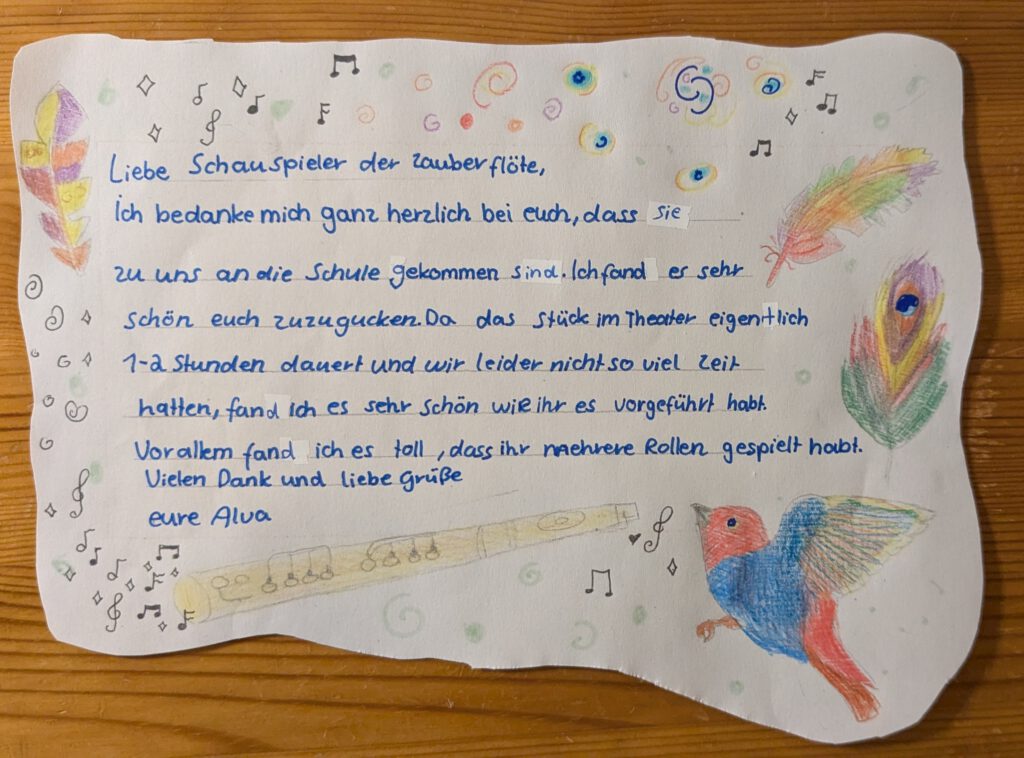 Liebe Schauspieler der Zauberflöte,
ich bedanke mich ganz herzlich bei euch, dass sie
zu uns an die Schule gekommen sind. Ich fand es sehr
schön euch zuzugucken. Da das Stück im Theater eigentlich
1-2 Stunden dauert und wir leider nicht so viel Zeit
hatten, fand ich es sehr schön wie ihr es vorgeführt habt.
Vorallem fand ich es toll, dass ihr mehrere Rollen gespielt habt.
Vielen Dank und liebe Grüße
eure Alva